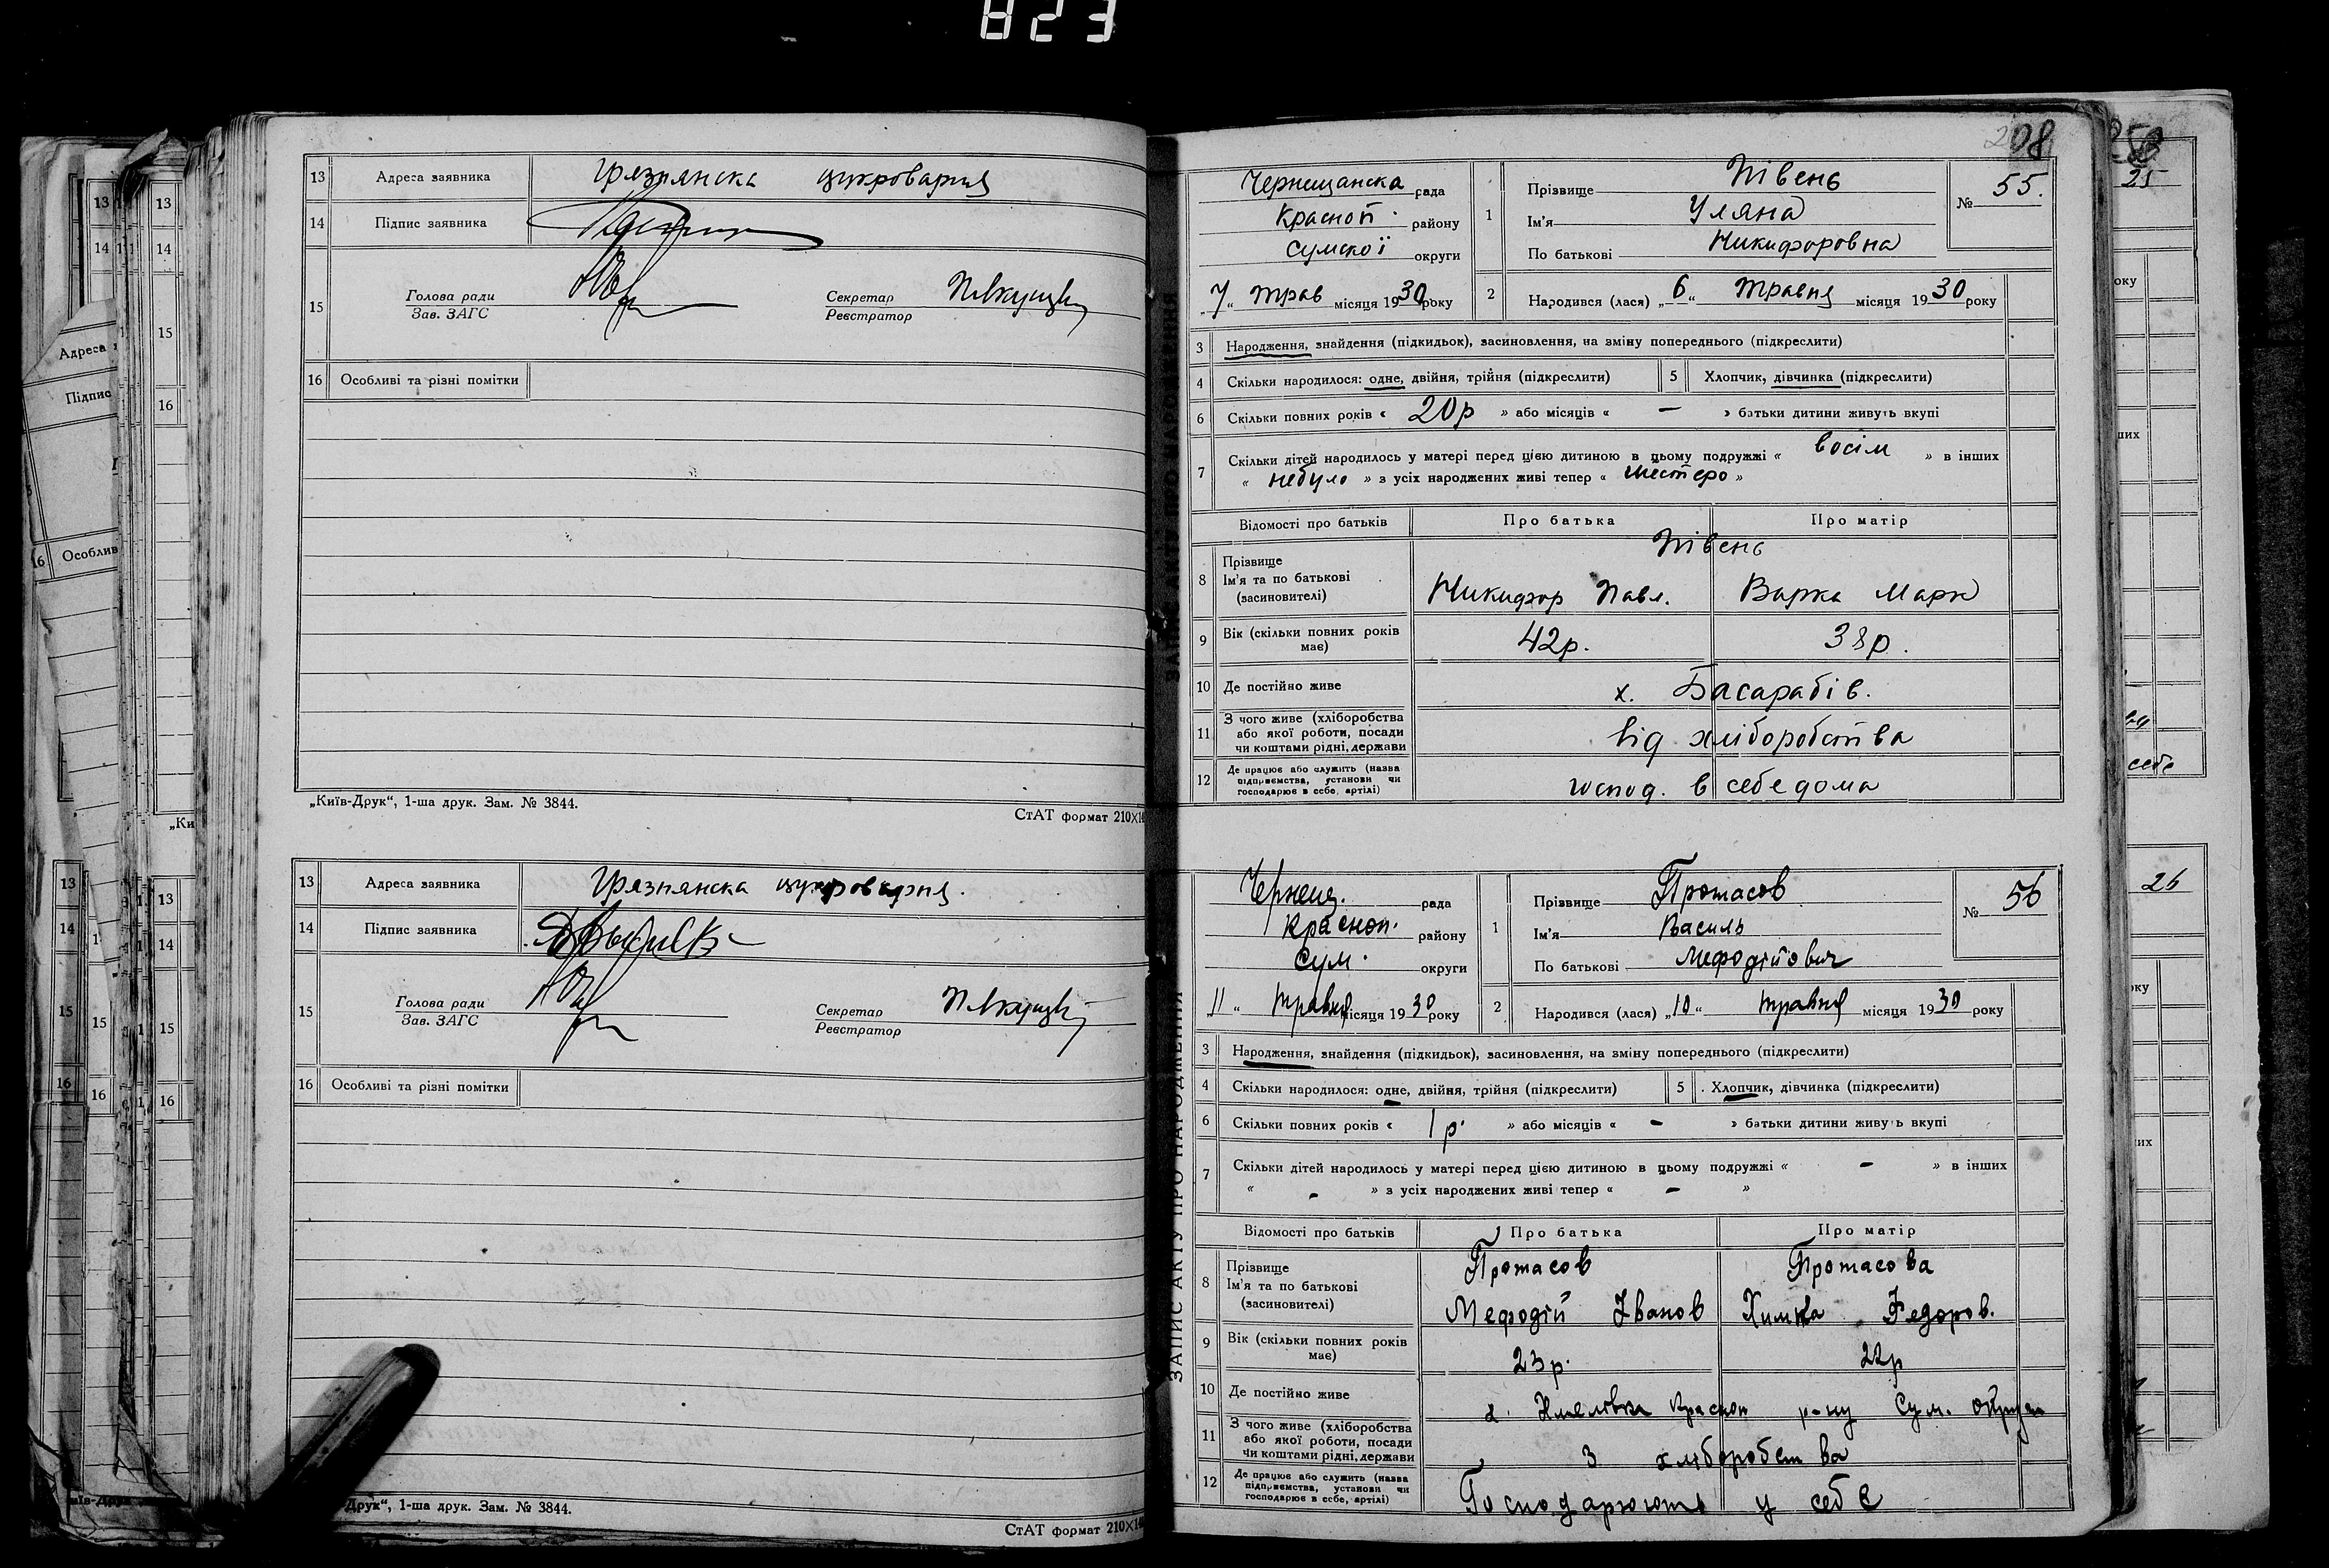 823
13 Адреса заявника Грязнянска цукроварня
14 Підпис заявника
15 Голова ради Секретар
Зав. ЗАГС Реєстратор
16 Особливі та різні помітки
„Київ-Друк“, 1-ша друк. Зам. № 3844.
СтАТ формат 210×14
13 Адреса заявника Грязнянска цукроварня.
14 Підпис заявника
15 Голова ради Секретар
Зав. ЗАГС Реєстратор
16 Особливі та різні помітки
Друк“, 1-ша друк. Зам. № 3844.
СтАТ формат 210×14
ЗАПИС АКТУ ПРО НАРОДЖЕННЯ
208
Чернещанска рада
Красноп. району
Сумскої округи
„7“ трав місяця 1930 року
1 Прізвище Півень
Ім'я Уляна
По батькові Никифоровна
№ 55.
2 Народився (лася) „6“ травня місяця 1930 року
3 Народження, знайдення (підкидьок), засиновлення, на зміну попереднього (підкреслити)
4 Скільки народилося: одне, двійня, трійня (підкреслити) 5 Хлопчик, дівчинка (підкреслити)
6 Скільки повних років « 20р » або місяців « — » батьки дитини живуть вкупі
7 Скільки дітей народилось у матері перед цією дитиною в цьому подружжі « восім » в інших
« небуло » з усіх народжених живі тепер « шестеро »
Відомості про батьків Про батька Про матір
8 Прізвище Ім'я та по батькові (засиновителі) Півень
Никифор Павл. Варка Марк
9 Вік (скільки повних років має) 42р. 38р.
10 Де постійно живе х. Басарабів.
11 З чого живе (хліборобства або якої роботи, посади чи коштами рідні, держави від хліборобства
12 Де працює або служить (назва підприємства, установи чи господарює в себе, артілі) господ. в себе дома
Чернещ. рада
Красноп. району
Сум. округи
„11“ травня місяця 1930 року
1 Прізвище Протасов
Ім'я Василь
По батькові Мефодійович
№ 56
2 Народився (лася) „10“ травня місяця 1930 року
3 Народження, знайдення (підкидьок), засиновлення, на зміну попереднього (підкреслити)
4 Скільки народилося: одне, двійня, трійня (підкреслити) 5 Хлопчик, дівчинка (підкреслити)
6 Скільки повних років « 1р. » або місяців « - » батьки дитини живуть вкупі
7 Скільки дітей народилось у матері перед цією дитиною в цьому подружжі « - » в інших
« - » з усіх народжених живі тепер « - »
Відомості про батьків Про батька Про матір
8 Прізвище Ім'я та по батькові (засиновителі) Протасов Протасова
Мефодій Іванов Химка Федоров.
9 Вік (скільки повних років має) 23р. 22р
10 Де постійно живе х. Красноп р-ну Сум. округи
11 З чого живе (хліборобства або якої роботи, посади чи коштами рідні, держави З хліборобства
12 Де працює або служить (назва підприємства, установи чи господарює в себе, артілі) Господарюють у себе